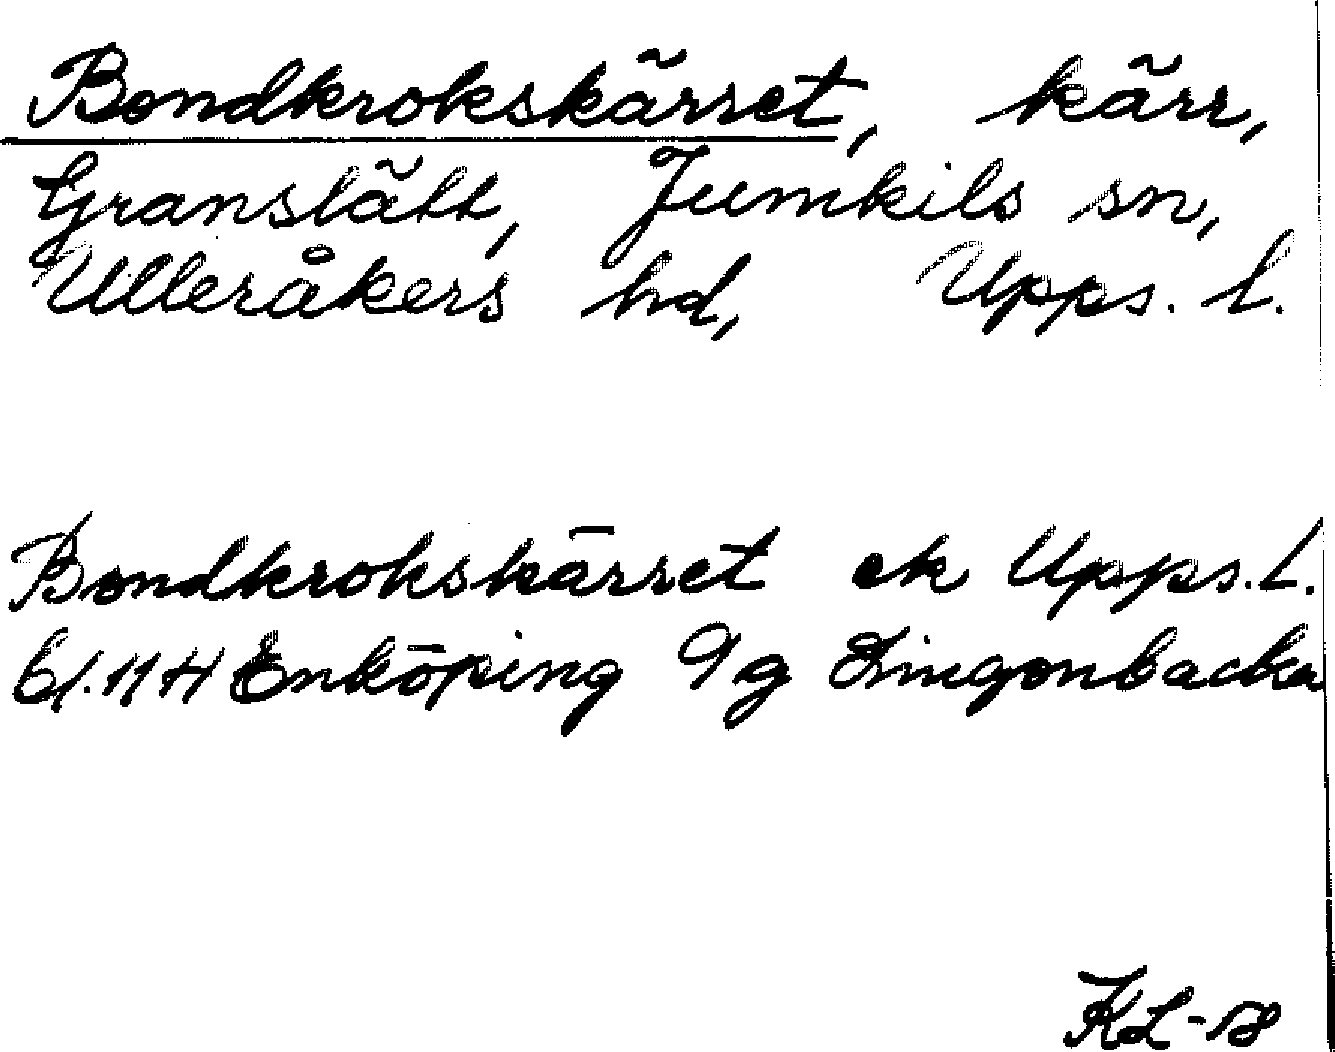 Bondkrokskärret, kärr,
Granslätt, Jumkils sn,
Ulleråkers hd, Upps. l.
Bondkrokskärret ek Upps. L.
Bl. 11 H Enköping 9g Lingonbacka
KL-58